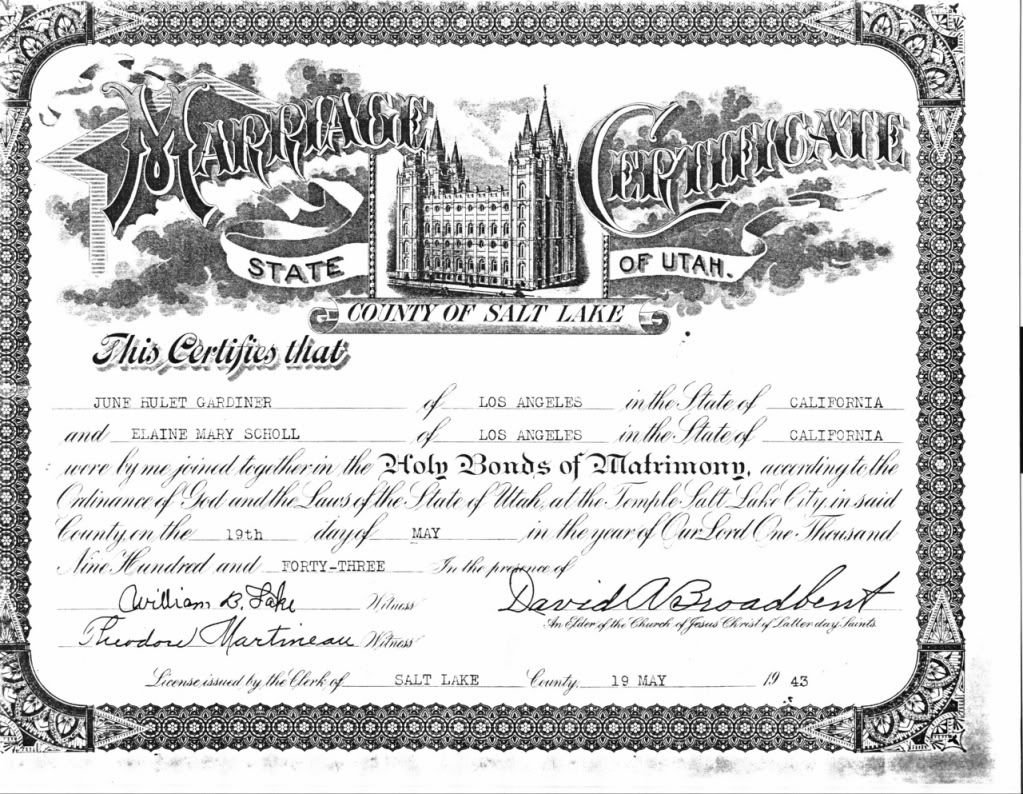 MARRIAGE CERTIFICATE
STATE OF UTAH.
COUNTY OF SALT LAKE
This Certifies that
JUNE HULET GARDINER of LOS ANGELES in the State of CALIFORNIA
and ELAINE MARY SCHOLL of LOS ANGELES in the State of CALIFORNIA
were by me joined together in the Holy Bonds of Matrimony, according to the
Ordinance of God and the Laws of the State of Utah, at the Temple Salt Lake City, in said
County, on the 19th day of MAY in the year of Our Lord One Thousand
Nine Hundred and FORTY-THREE In the presence of
William B. Witness David A Broadbent
An Elder of the Church of Jesus Christ of Latter day Saints.
Theodore Martineau Witness
License issued by the Clerk of SALT LAKE County, 19 MAY 19 43